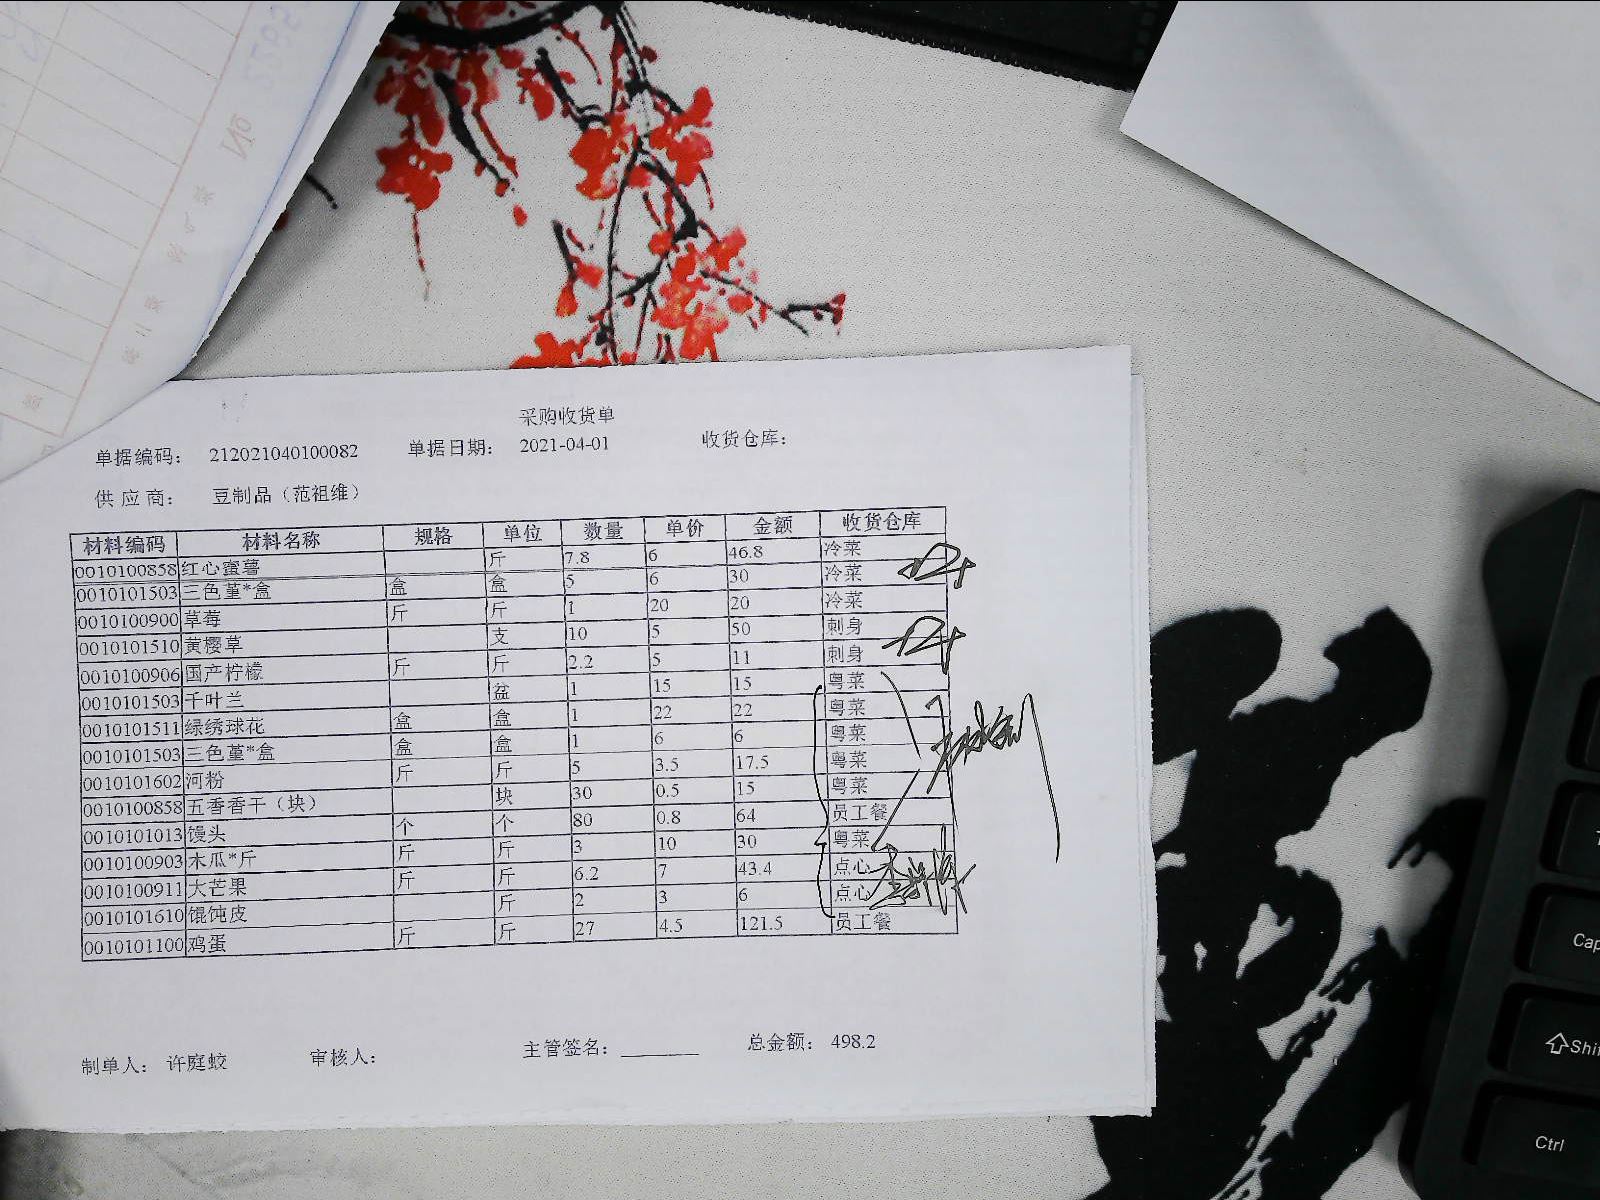 采购收货单
单据编码： 212021040100082 单据日期： 2021-04-01 收货仓库：
供 应 商： 豆制品（范祖维）
材料编码 材料名称 规格 单位 数量 单价 金额 收货仓库
0010100858 红心蜜薯 斤 7.8 6 46.8 冷菜
0010101503 三色堇*盒 盒 盒 5 6 30 冷菜
0010100900 草莓 斤 斤 1 20 20 冷菜
0010101510 黄樱草 支 10 5 50 刺身
0010100906 国产柠檬 斤 斤 2.2 5 11 刺身
0010101503 千叶兰 盆 1 15 15 粤菜
0010101511 绿绣球花 盒 盒 1 22 22 粤菜
0010101503 三色堇*盒 盒 盒 1 6 6 粤菜
0010101602 河粉 斤 斤 5 3.5 17.5 粤菜
0010100858 五香香干（块） 块 30 0.5 15 粤菜
0010101013 馒头 个 个 80 0.8 64 员工餐
0010100903 木瓜*斤 斤 斤 3 10 30 粤菜
0010100911 大芒果 斤 斤 6.2 7 43.4 点心
0010101610 馄饨皮 斤 2 3 6 点心
0010101100 鸡蛋 斤 斤 27 4.5 121.5 员工餐
制单人： 许庭蛟 审核人： 主管签名： 总金额： 498.2
Cap
Shi
Ctrl